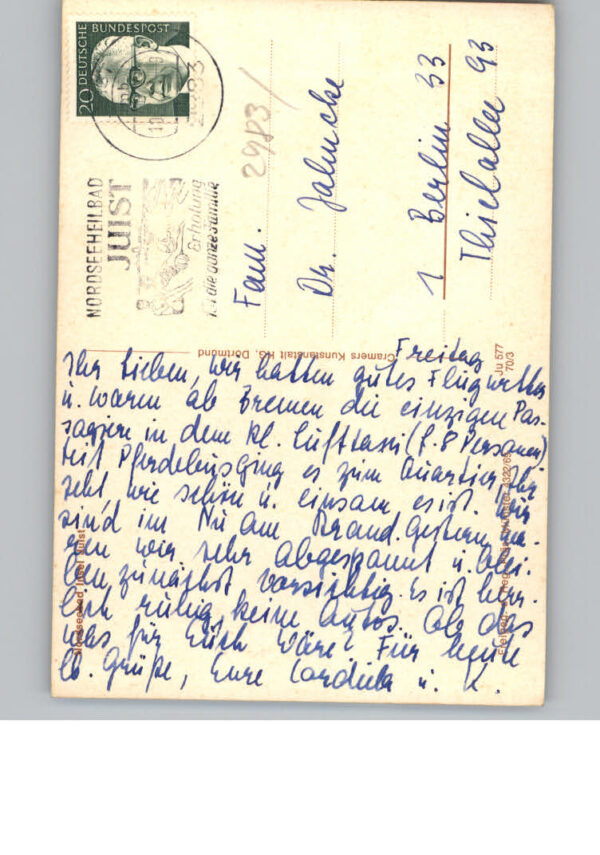 20 DEUTSCHE BUNDESPOST
2983
NORDSEEHEILBAD
JUIST
Erholung
für die ganze Familie
2983/
Fam.
Dr. Jahncke
1 Berlin 33
Thielallee 93
Cramers Kunstanstalt KG, Dortmund
Ju 577
70/3
Nordseebad Insel Juist
Freitag
Ihr Lieben, wir hatten gutes Flugwetter
u. waren ab Bremen die einzigen Pas-
sagiere in dem kl. Lufttaxi (f. 8 Personen)
Mit Pferdebus ging es zum Quartier, Ihr
seht, wie schön u. einsam es ist. Wir
sind im Nu am Strand. Gestern wa-
ren wir sehr abgespannt u. blei-
ben zunächst vorsichtig. Es ist herr-
lich ruhig, keine Autos. Ob das
was für Euch wäre? Für heute
lb. Grüße, Eure Cordula u. K.